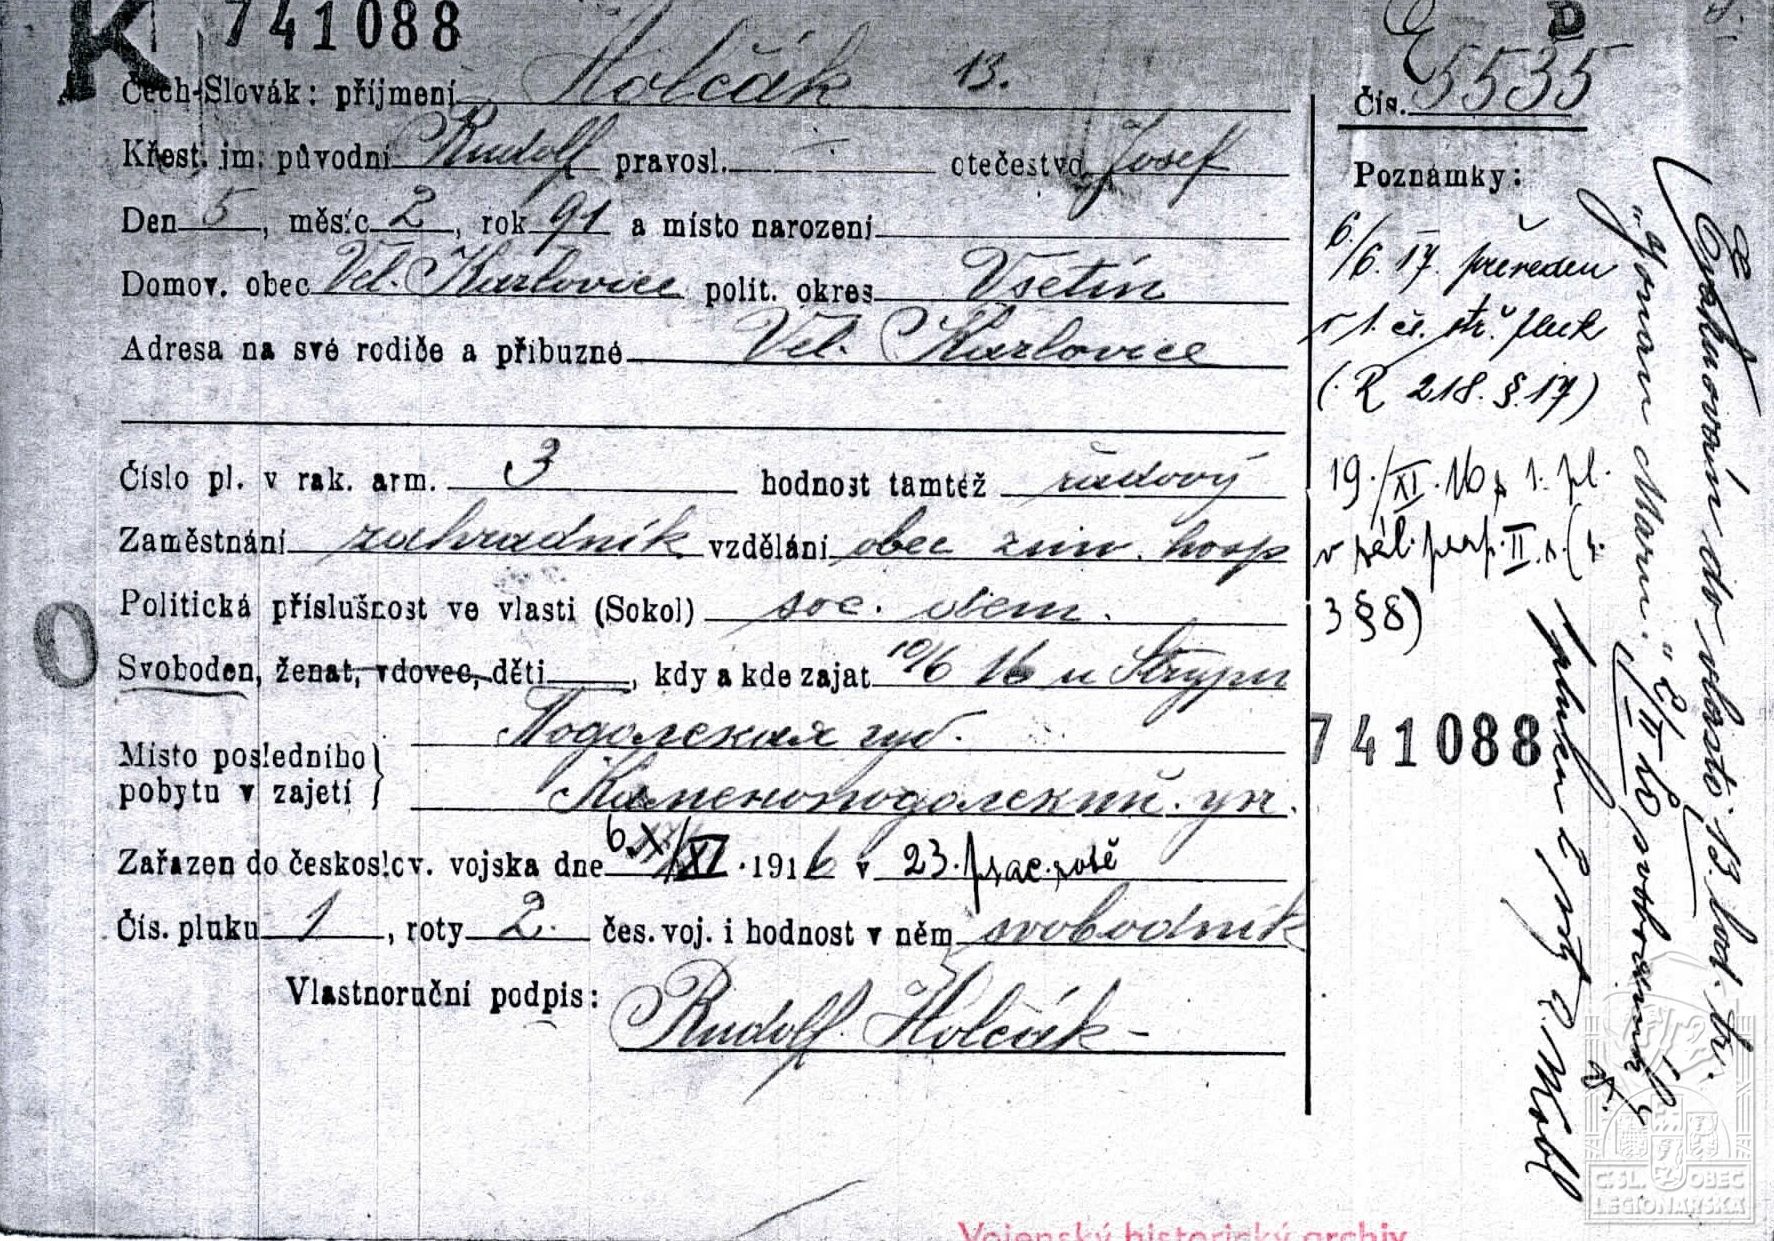 K 741088
D
Čech-Slovák: příjmení Holčák 13.
Čís. 5535
Křest. jm. původní Rudolf pravosl. — otečestvo Josef
Den 5, měsíc 2, rok 91 a místo narození
Domov. obec Vel. Karlovice polit. okres Vsetín
Adresa na své rodiče a příbuzné Vel. Karlovice
Číslo pl. v rak. arm. 3 hodnost tamtéž řadový
Zaměstnání zahradník vzdělání obec zim. hosp
Politická příslušnost ve vlasti (Sokol) soc. dem.
O
Svoboden, ženat, vdovec, děti, kdy a kde zajat 10/6 16 u Strypu
Místo posledního pobytu v zajetí } Подолская губ.
Каменоподолский. уез.
Zařazen do českoslov. vojska dne 6. XI. 1916 v 23. prac. rotě
Čís. pluku 1, roty 2. čes. voj. i hodnost v něm svobodník
Vlastnoruční podpis: Rudolf Holčák
Poznámky:
6./6. 17. převeden
v 1. čs. stř. pluk
(R 218. §. 17)
19./XI. 16 1. pl.
II.
3 § 8)
741088
Evakuován do vlasti 13. lod. tr.
"Yonan Maru." 2/II 20
ČSL. OBEC
LEGIONÁŘSKÁ
Vojenský historický archiv